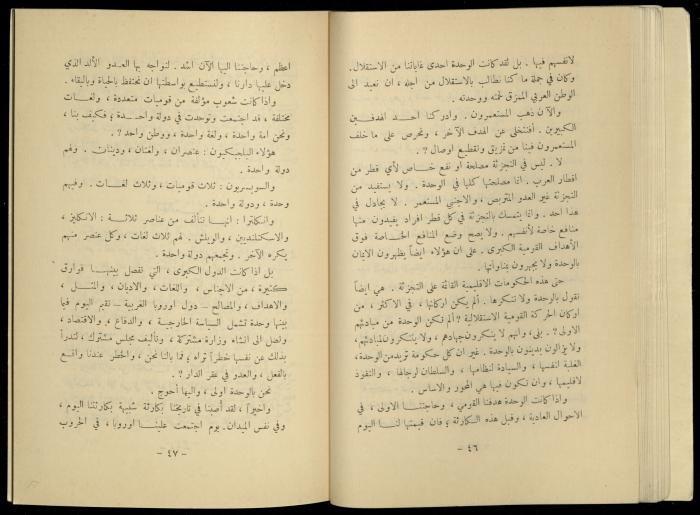 لانفسهم فيها . بل لقد كانت الوحدة احدى غاياتنا من الاستقلال.
وكان في جملة ما كنا نطالب بالاستقلال من اجله ، ان نعيد الى
الوطن العربي الممزق لحمته ووحدته .
والآن ذهب المستعمرون . وادركنا أحد الهدفين
الكبيرين . أفنتخلى عن الهدف الآخر ، ونحرص على ما خلف
المستعمرون فينا من تمزيق وتقطيع اوصال ؟ .
لا . ليس في التجزئة مصلحة او نفع خاص لأي قطر من
اقطار العرب . انما مصلحتها كلها في الوحدة . ولا يستفيد من
التجزئة غير العدو المتربص ، والاجنبي المستعمر . لا يجادل في
هذا احد . وانما يتمسك بالتجزئة في كل قطر افراد يفيدون منها
منافع خاصة لأنفسهم . ولا يصح وضع المنافع الخاصة فوق
الأهداف القومية الكبرى . على ان هؤلاء ايضاً يظهرون الايمان
بالوحدة ولا يجهرون بمناوأتها .
حتى هذه الحكومات الاقليمية القائمة على التجزئة . هي ايضاً
تقول بالوحدة ولا تنكرها . ألم يكن اركانها ، في الاكثر ، من
اركان الحركة القومية الاستقلالية ? ألم تكن الوحدة من مبادئهم
الاولى ? . بلى ، وانهم لا ينكرون جهادهم ، ولا يتنكرون لمبادئهم ،
ولا يزالون يدينون بالوحدة . غير ان كل حكومة تريد من الوحدة ،
الغلبة لنفسها ، والسيادة لنظامها ، والسلطان لرجالها ، والنفوذ
لاقليمها ، وان تكون فيها هي المحور والاساس .
واذا كانت الوحدة هدفنا القومي ، وحاجتنا الاولى ، في
الاحوال العادية ، وقبل هذه الكارثة ؛ فان قيمتها لنا اليوم
- ٤٦ -
اعظم ، وحاجتنا اليها الآن اشد . لنواجه بها العدو الألد الذي
دخل علينا دارنا ، ولنستطيع بواسطتها ان نحتفظ بالحياة وبالبقاء .
واذا كانت شعوب مؤلفة من قوميات متعددة ، ولغات
مختلفة ، قد اجتمعت وتوحدت في دولة واحدة ؛ فكيف بنا ،
ونحن امة واحدة ، ولغة واحدة ، ووطن واحد ? .
هؤلاء البلجيكيون : عنصران ، ولغتان ، ودينان . ولهم
دولة واحدة .
والسويسريون : ثلاث قوميات ، وثلاث لغات . وفيهم
وحدة ، ودولة واحدة .
وانكلترا : انها تتألف من عناصر ثلاثة : الانكليز ،
والاسكتلنديين ، والويلش . لهم ثلاث لغات ، وكل عنصر منهم
يكره الآخر . وتجمعهم دولة واحدة .
بل اذا كانت الدول الكبرى ، التي تفصل بينها فوارق
كثيرة ، من الاجناس ، واللغات ، والاديان ، والمثل ،
والاهداف ، والمصالح – دول اوروبا الغربية – تقيم اليوم فيما
بينها وحدة تشمل السياسة الخارجية ، والدفاع ، والاقتصاد ،
وتصل الى انشاء وزارة مشتركة ، وتأليف مجلس مشترك ، لتدرأ
بذلك عن نفسها خطراً تراه ؛ فما بالنا نحن ، والخطر عندنا واقع
بالفعل ، والعدو في عقر الدار ? .
نحن بالوحدة اولى ، واليها أحوج .
واخيراً ، لقد أصبنا في تاريخنا بكارثة شبيهة بكارثتنا اليوم ،
وفي نفس الميدان . يوم اجتمعت علينا اوروبا ، في الحروب
- ٤٧ -